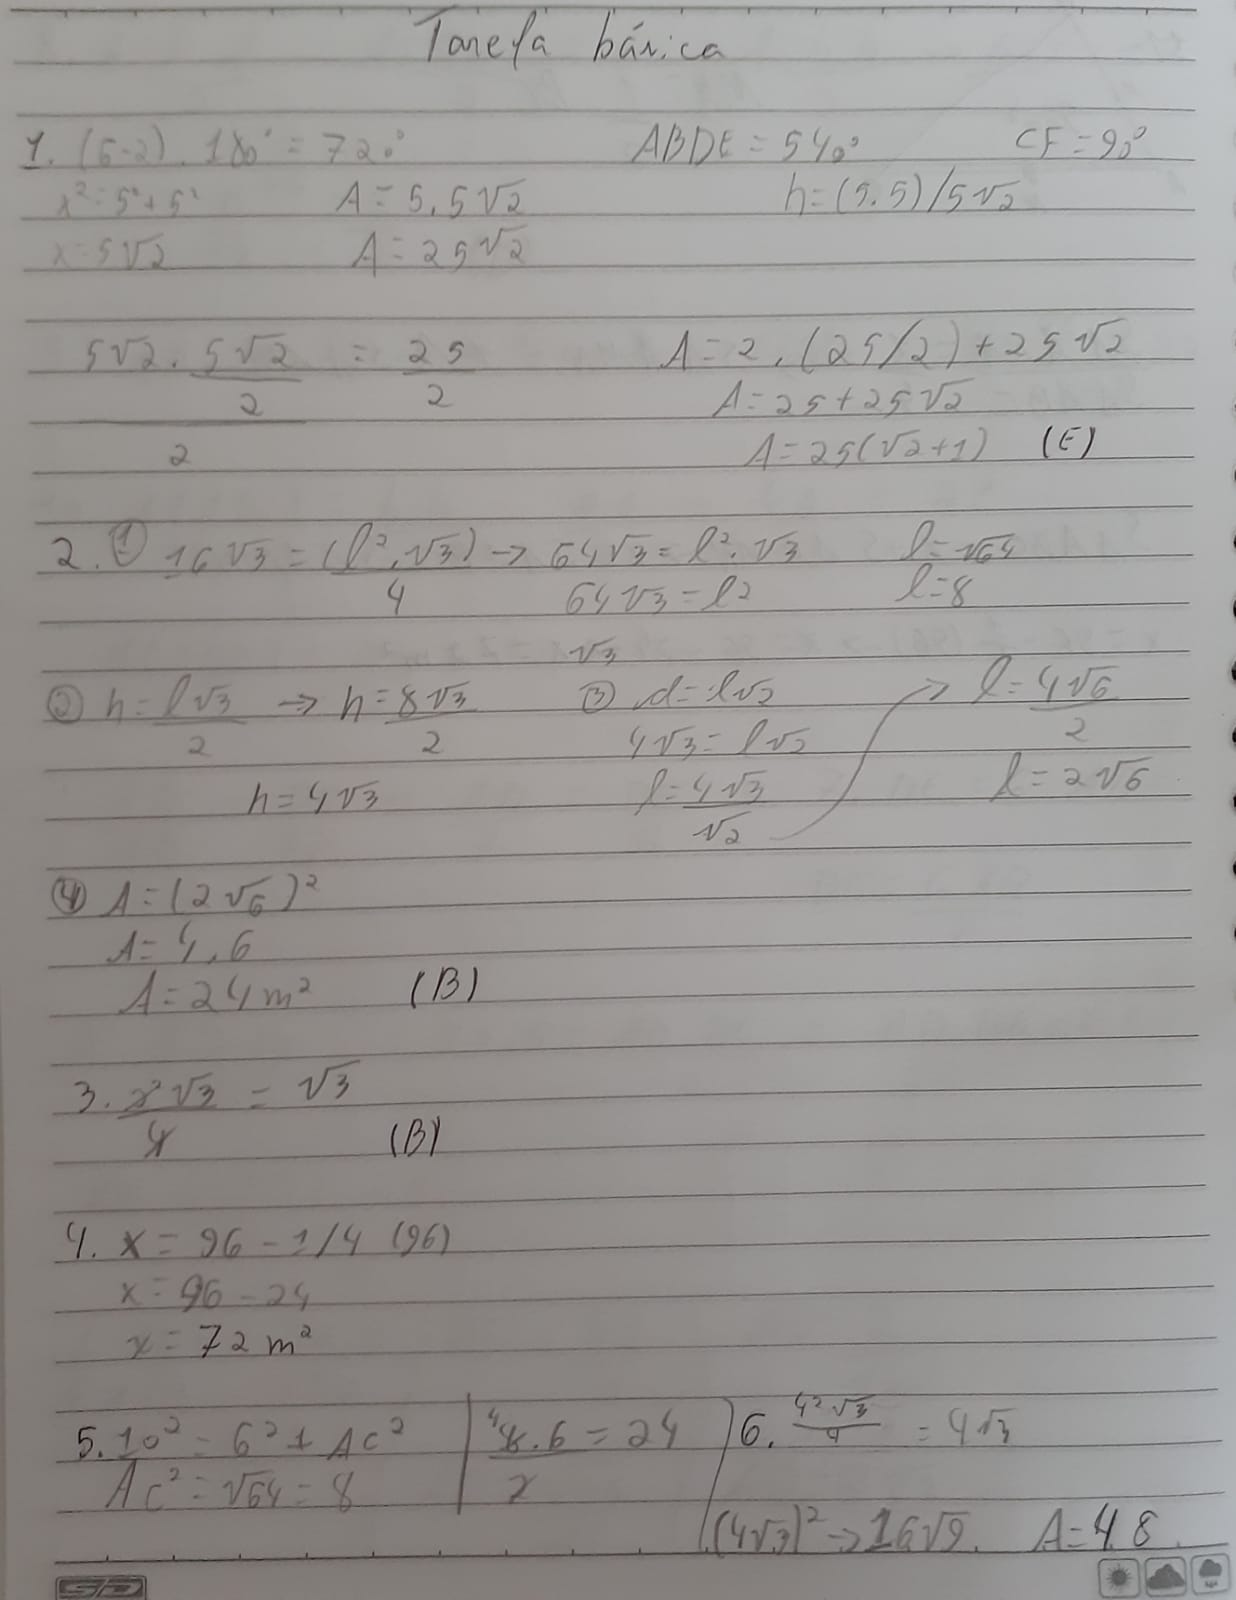 Tarefa básica
1. (6-2) . 180° = 720° ABDE = 540° CF = 90°
x² = 5² + 5² A = 5.5√2 h = (5.5)/5√2
x = 5√2 A = 25√2
5√2 . 5√2/2 /2 = 25/2 A = 2 . (25/2) + 25√2
A = 25 + 25√2
A = 25(√2+1) (E)
2. ① 16√3 = (l².√3)/4 → 64√3 = l².√3 l = √64
64√3/√3 = l² l = 8
② h = l√3/2 → h = 8√3/2 ③ d = l√2 → l = 4√6/2
4√3 = l√2
h = 4√3 l = 4√3/√2 l = 2√6
④ A = (2√6)²
A = 4.6
A = 24 m² (B)
3. 2²√3/4 = √3
(B)
4. x = 96 - 1/4 (96)
x = 96 - 24
x = 72 m²
5. 10² = 6² + AC² 4 8.6/2 = 24 6. 4²√3/4 = 4√3
AC² = √64 = 8
(4√3)² → 16√9 A = 48
SD